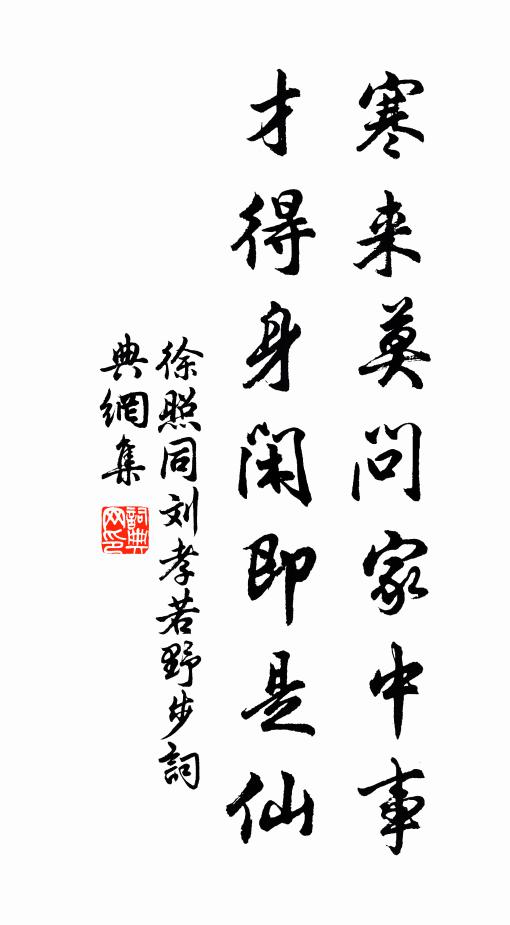 寒来莫问家中事
才得身闲即是仙
徐照同刘孝若野步詞
典網集
詞典网印